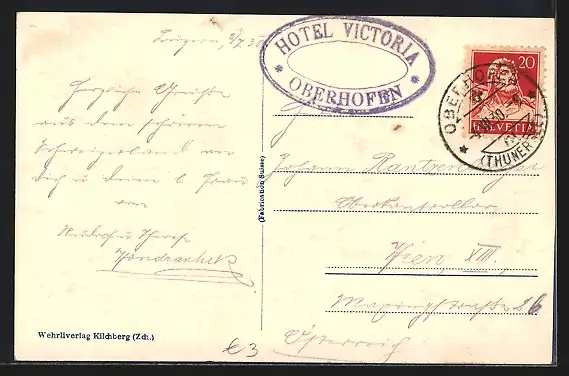 Luzern, 2/7 30
HOTEL VICTORIA
OBERHOFEN
20
HELVETIA
OBERHOFEN
(THUNERSEE)
Herzliche Grüsse
aus dem schönen
Schweizerland an
Dich u. Deine l. Frau
von
(Fabrication Suisse)
Johann
Oberkontrollor
Wien, XIII.
26
Österreich
Wehrliverlag Kilchberg (Zch.)
€3